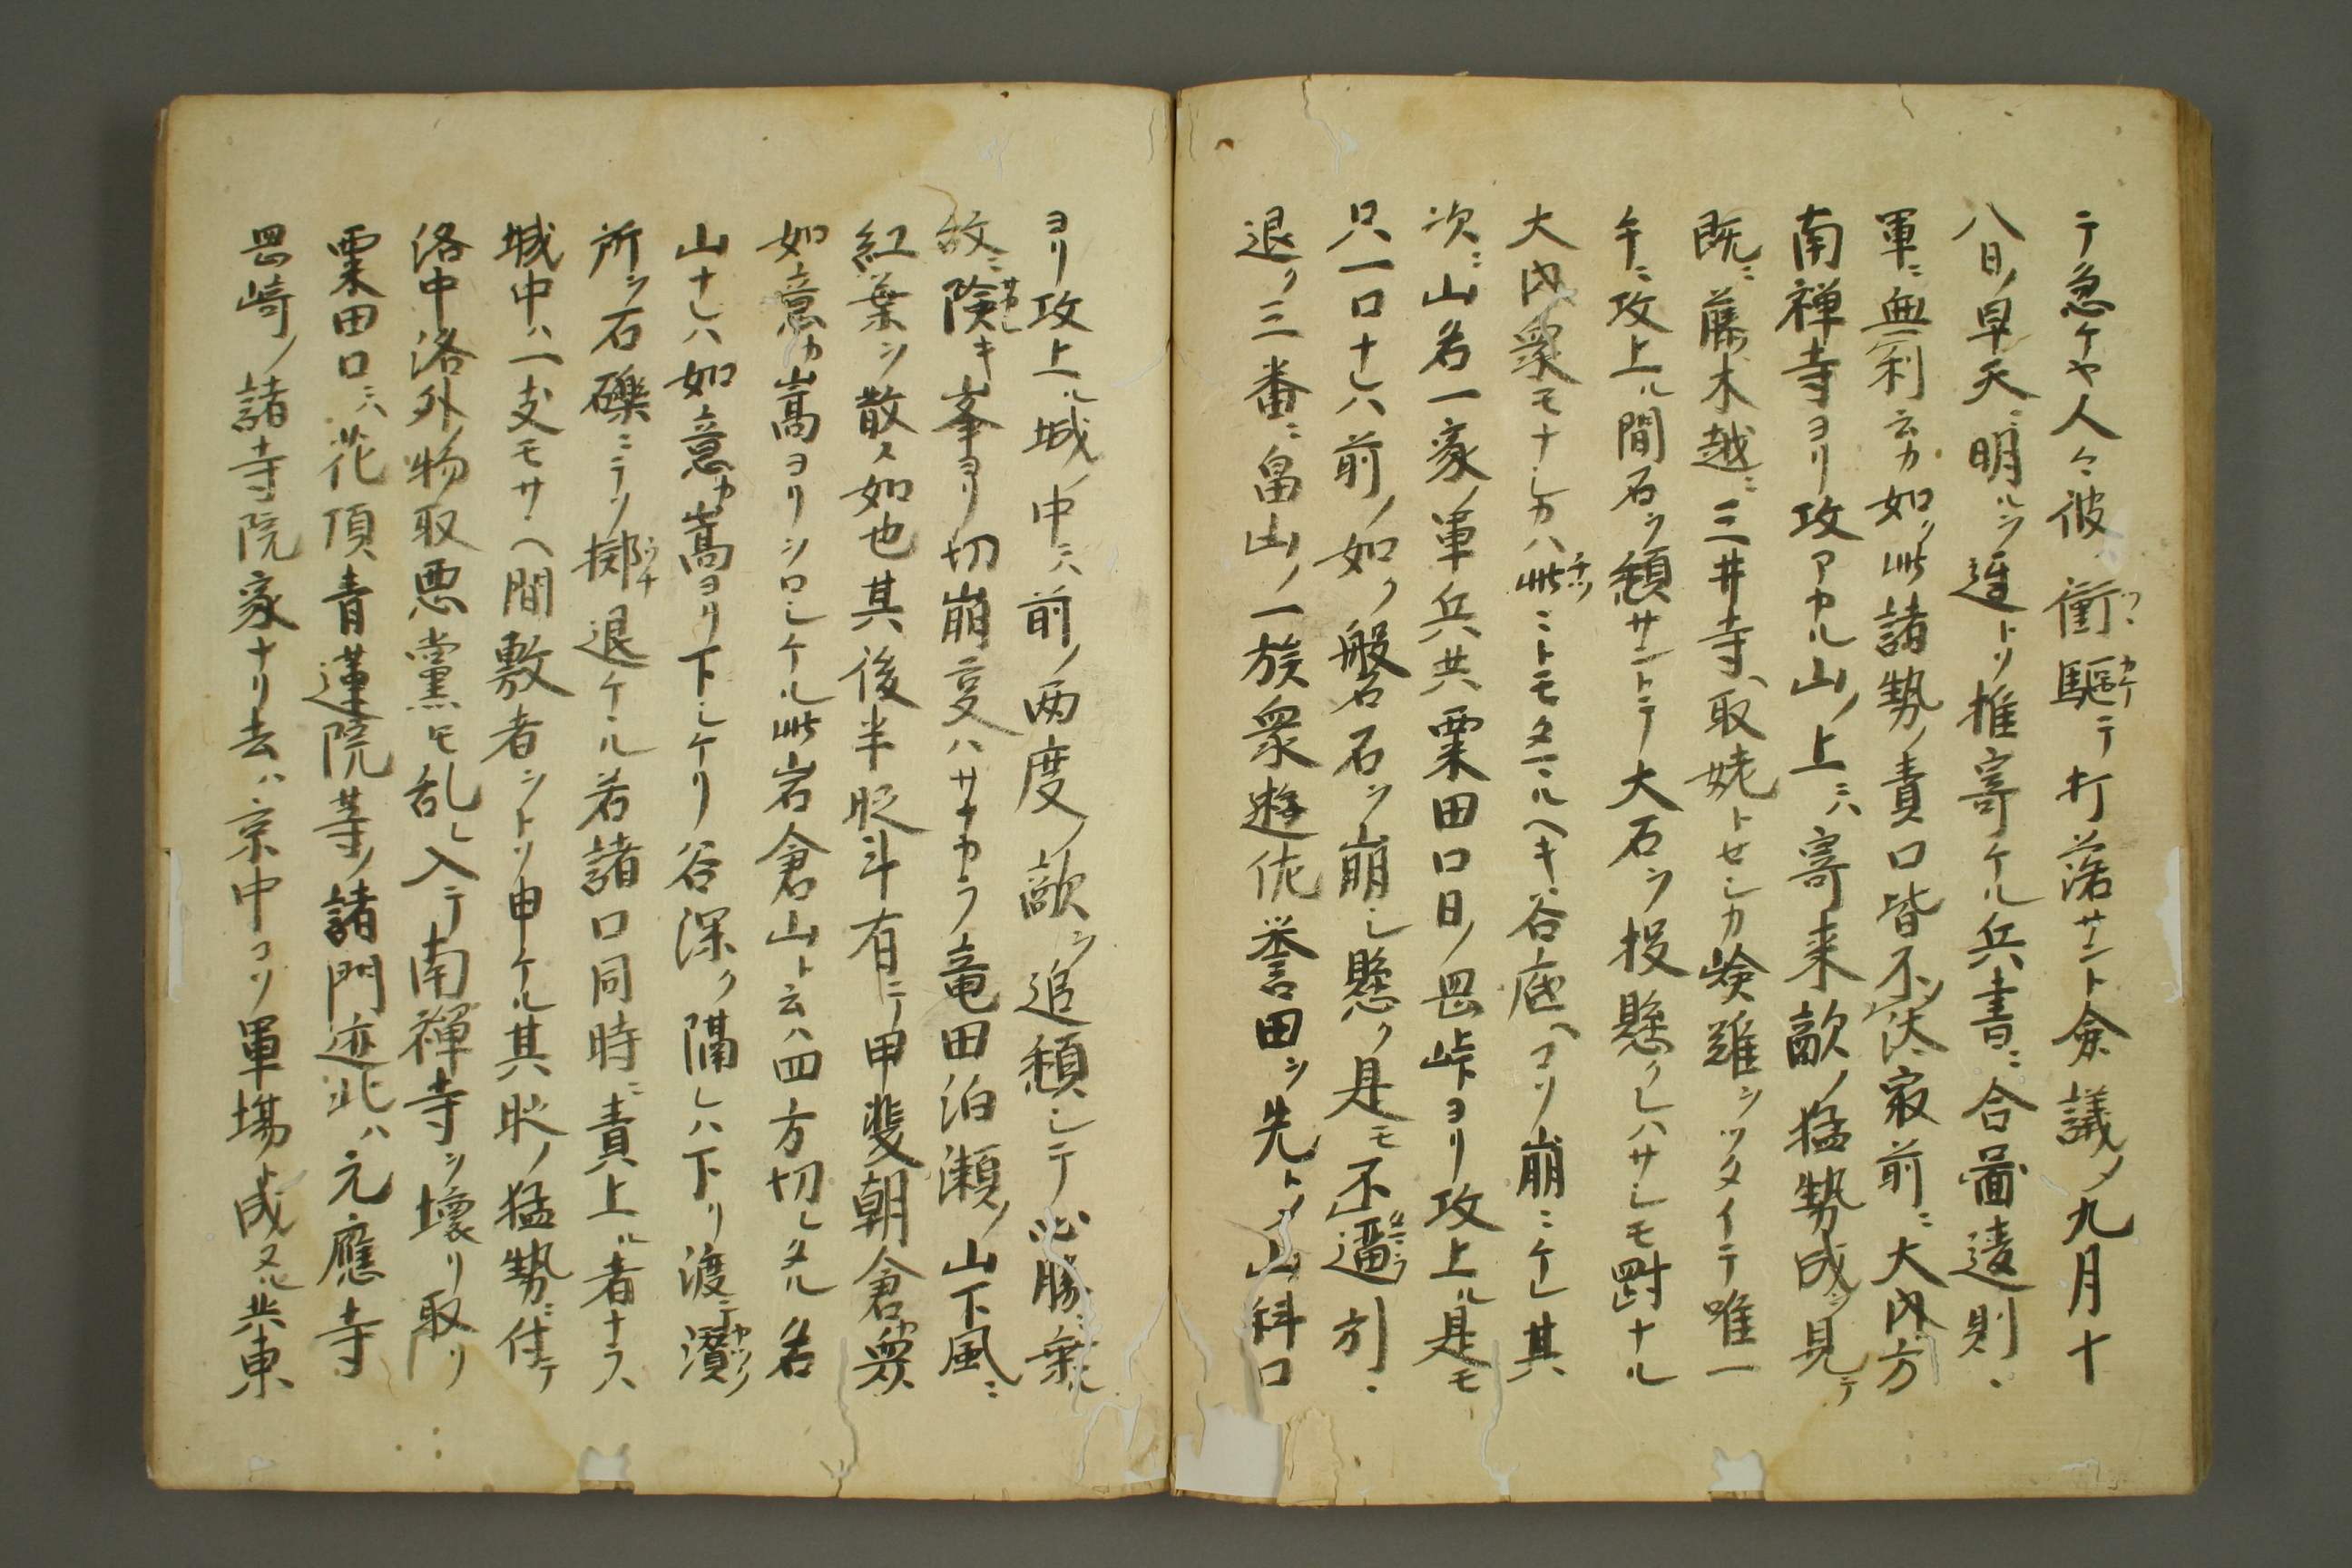 テ急ケヤ人々彼衝駈テ打落サントノ僉議ノ九月十
八日ノ早天ニ明ルヲ遅トソ推寄ケル兵書ニ合図違則ハ
軍ニ無利云カ如ソ此諸勢ノ責口皆不汰最前ニ大内方
南禅寺ヨリ攻アカル山ノ上ニハ寄来敵ノ猛勢成ヲ見テ
既ニ藤木越ニ三井寺ヘ取
トセシカ嶮難ヲツタイテ唯一
手ニ攻上ル間石ヲ頽サントテ大石ヲ投懸クレハサレモ
ナル
大内衆モナシカハ此ニトモタマルヘキ谷底ヘコソ崩ニケレ其
次ニ山名一家ノ軍兵共粟田口日ノ岡峠ヨリ攻上ル是モ
只一口ナレハ前ノ如ク盤石ヲ崩シ懸ク是モ不逼引
退ク三番ニ畠山ノ一族衆遊佐誉田ヲ先トソ山科口
ヨリ攻上ル城ノ中ニハ前ノ両度ノ敵ヲ追頽シテ必勝ニ乗ル
故ニ険キ峯ヨリ切崩
ハサナカラ竜田泊瀬ノ山下風ニ
紅葉ヲ散ス如也其後半時斗有テ甲斐朝倉衆
如意カ嵩ヨリシロシケル此岩倉山ト云ハ四方切レタル名
山ナレハ如意カ嵩ヨリ下シケリ谷深ク隔レハ下リ渡テ
所ヲ石礫ニテソ擲退ケル若諸口同時ニ責上ル者ナラハ
城中ハ一支モサヽヘ間敷者ヲトソ申ケル其時ノ猛勢ニ付テ
洛中洛外ノ物取悪党モ乱レ入テ南禅寺ヲ壊リ取リ
粟田口ニハ花頂青蓮院等ノ諸門迹北ハ元應寺
岡崎ノ諸寺院家ナリ去ハ京中コソ軍場ト成ヌル共東